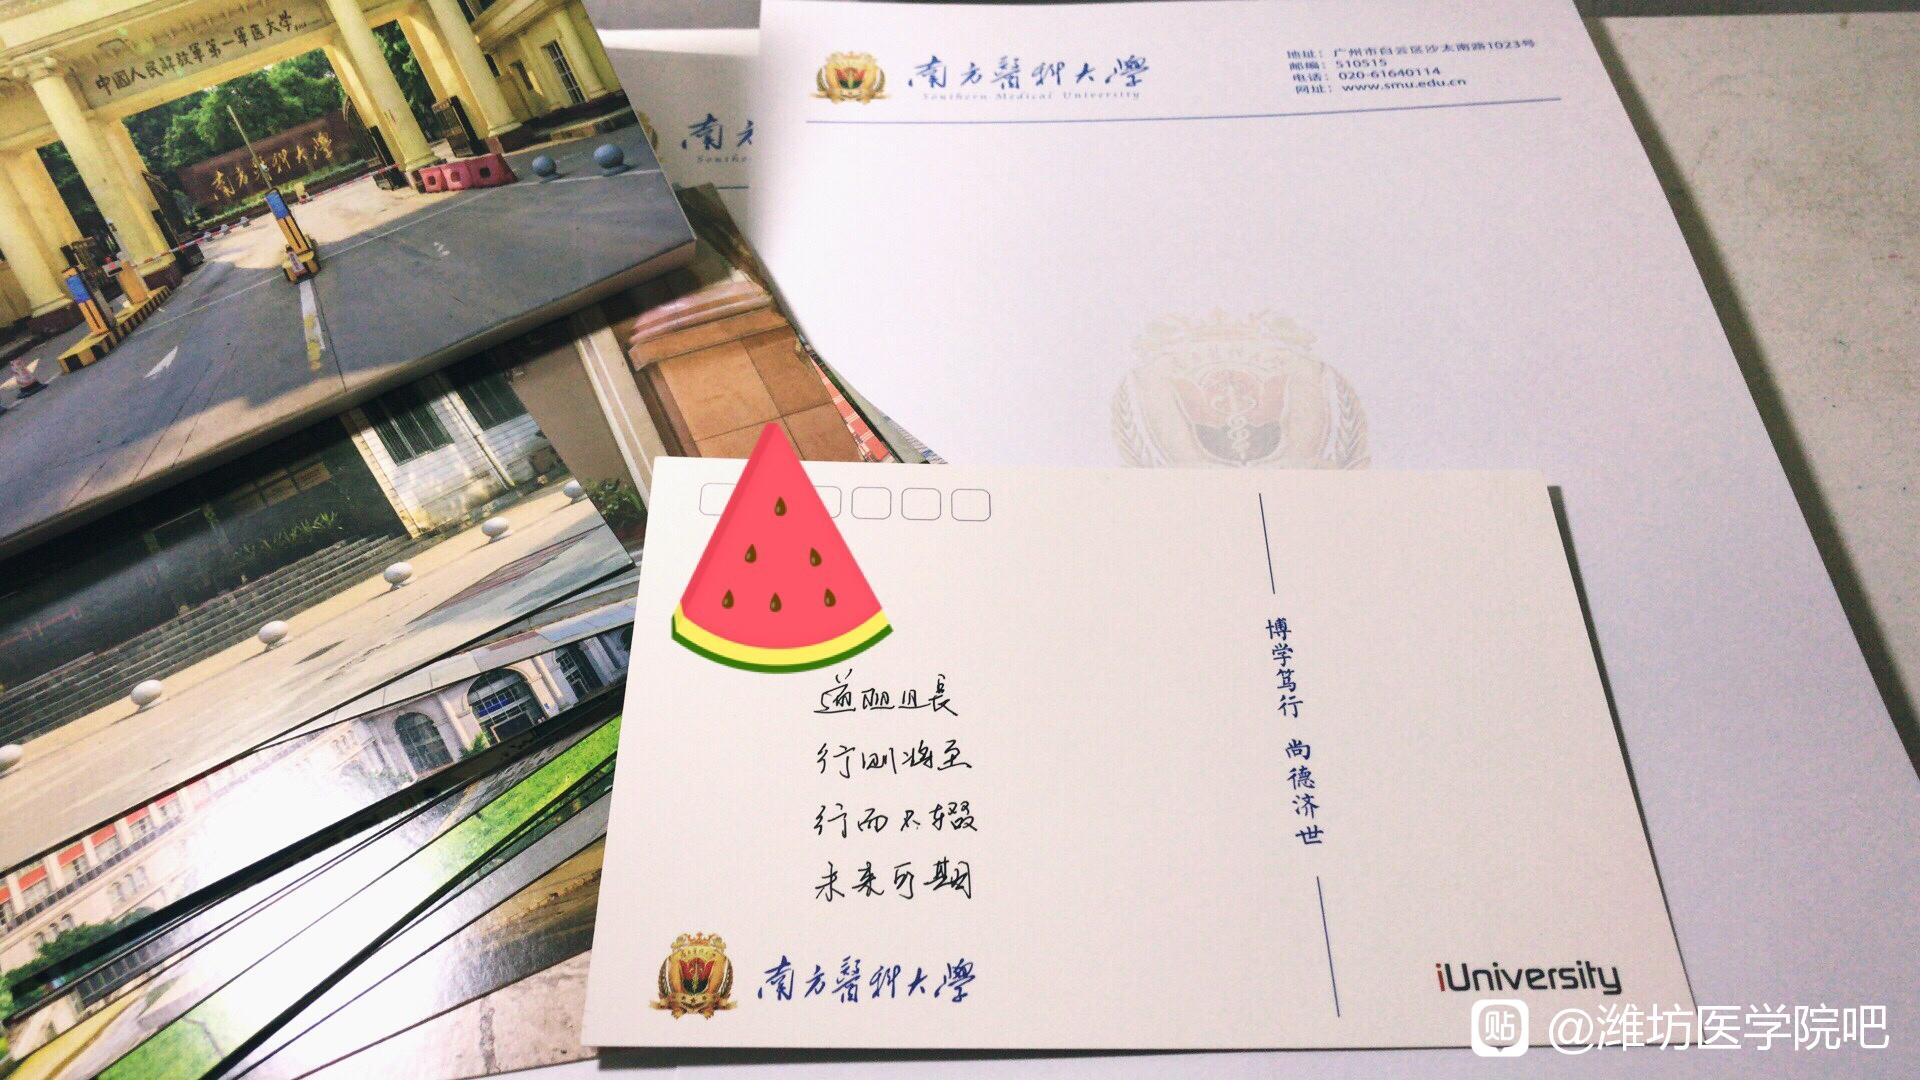 中國人民解放軍第一軍医大学
南方醫科大學
南方醫科大學
Southern Medical University
地址：广州市白云区沙太南路1023号
邮编：510515
电话：020-61640114
网址：www.smu.edu.cn
南方
Southe
道阻且長
行则将至
行而不辍
未来可期
博学笃行 尚德济世
南方醫科大學
iUniversity
贴 @潍坊医学院吧